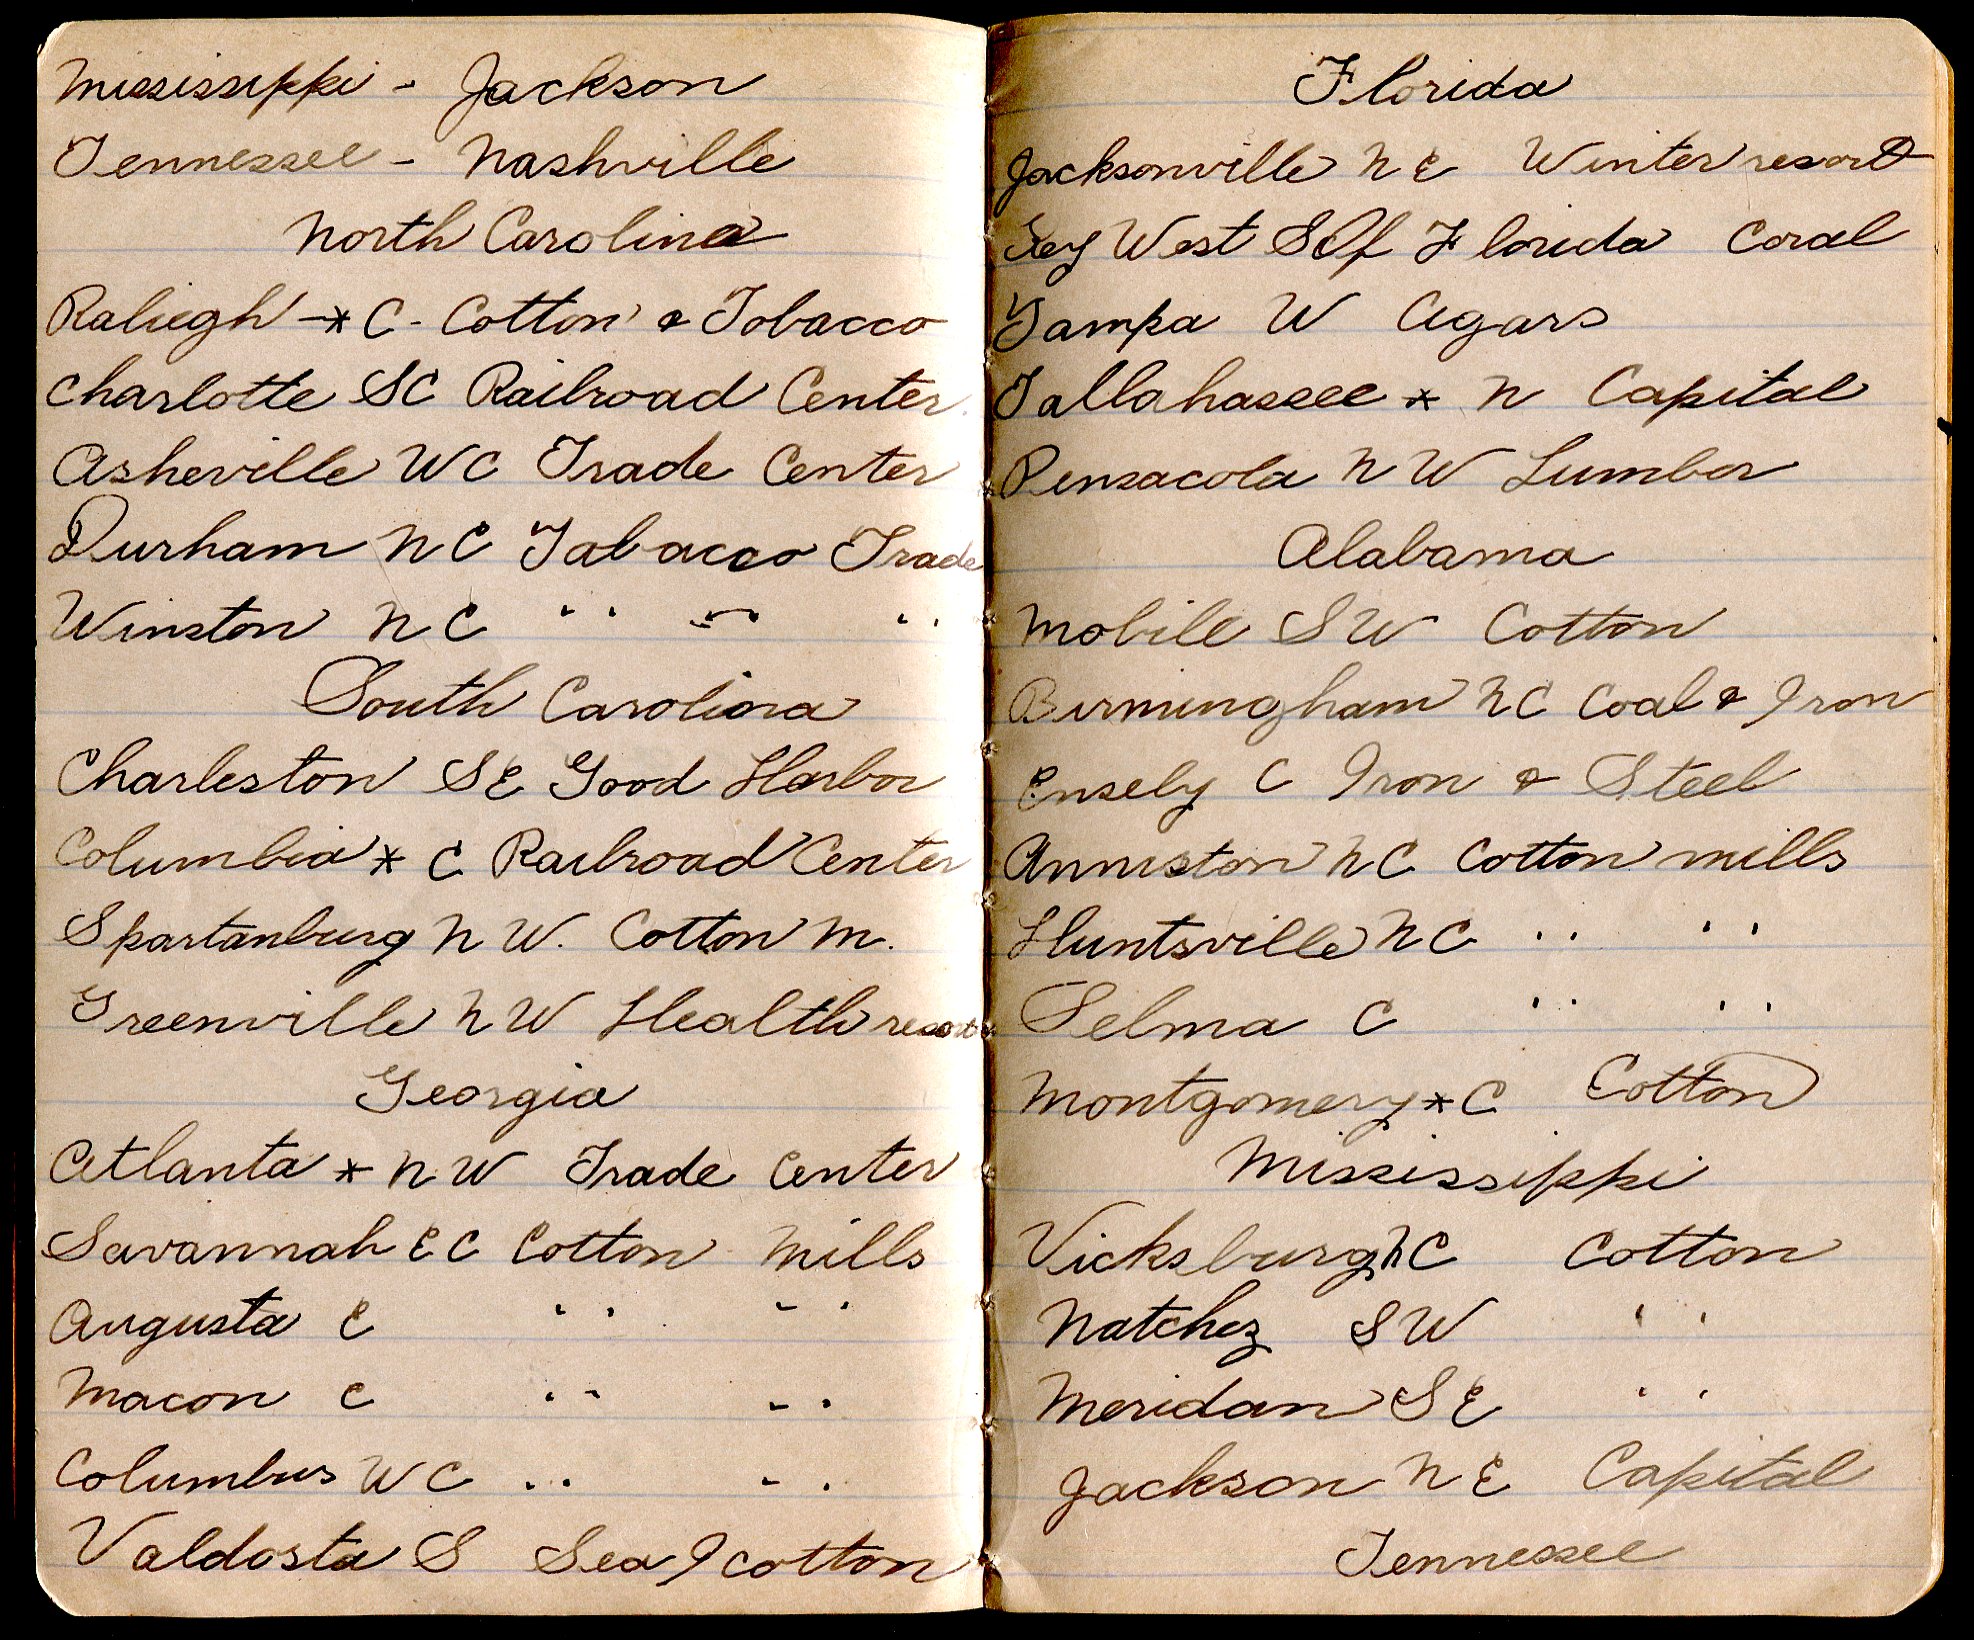 Mississippi - Jackson
Tennessee - Nashville
North Carolina
Raliegh -* C - Cotton & Tobacco
Charlotte SC Railroad Center
Asheville WC Trade Center
Durham NC Tabacco Trade
Winston NC " " "
South Carolina
Charleston SE Good Harbor
Columbia * C Railroad Center
Spartanburg N W. Cotton M.
Greenville N W Health resort
Georgia
Atlanta * N W Trade Center
Savannah E C Cotton Mills
Augusta E " "
Macon C " "
Columbus W C " "
Valdosta S Sea I cotton
Florida
Jacksonville N E Winter resort
Key West S Of Florida Coral
Tampa W Cigars
Tallahassee * N Capital
Pensacola N W Lumber
Alabama
Mobile SW Cotton
Birmingham NC Coal & Iron
Ensely C Iron & Steel
Anniston NC Cotton mills
Huntsville NC " "
Selma C " "
Montgomery * C Cotton
Mississippi
Vicksburg NC Cotton
Natchez SW "
Meridan SE "
Jackson N E Capital
Tennessee